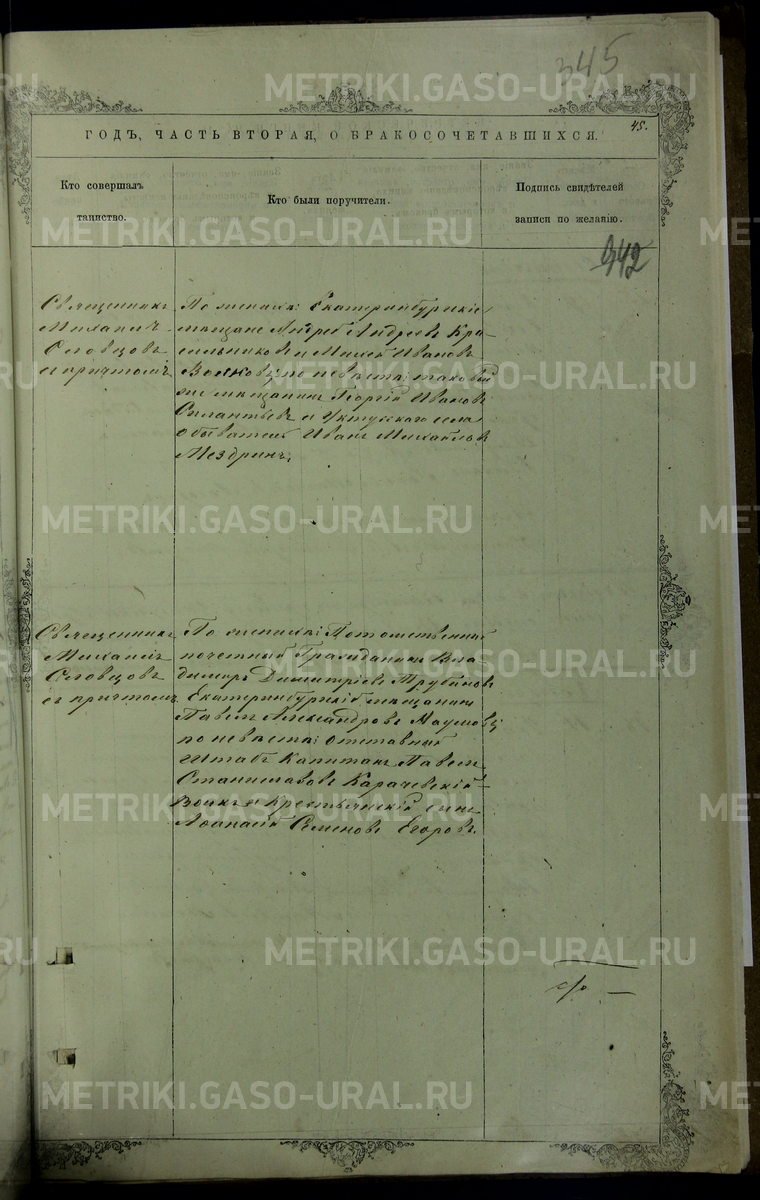 345
45.
ГОДЪ, ЧАСТЬ ВТОРАЯ, О БРАКОСОЧЕТАВШИХСЯ.
Кто совершалъ
таинство.
Кто были поручители.
Подпись свидѣтелей
записи по желанію.
942
Священникъ
Михаилъ
Словцовъ
съ причтомъ
По женихѣ: Екатеринбургскіе
мѣщане Андрей Андреевъ Кра-
сильниковъ и Иванов
Волковъ; по невѣстѣ: таковый
же мѣщанинъ Георгій Ивановъ
и Уктусскаго села
обыватель Иванъ Михайловъ
Мездринъ.
Священникъ
Михаилъ
Словцовъ
съ причтомъ
По женихѣ: Потомственный
почетный Гражданинъ Вла-
димиръ Димитріевъ
Екатеринбургскій мѣщанинъ
Павелъ Александровъ Наумовъ;
по невѣстѣ: отставный
Штабсъ Капитанъ Павелъ
Станиславовъ Карачевскій-
Волкъ и Крестьянскій сынъ
Аѳанасій Семеновъ Егоровъ.
METRIKI.GASO-URAL.RU